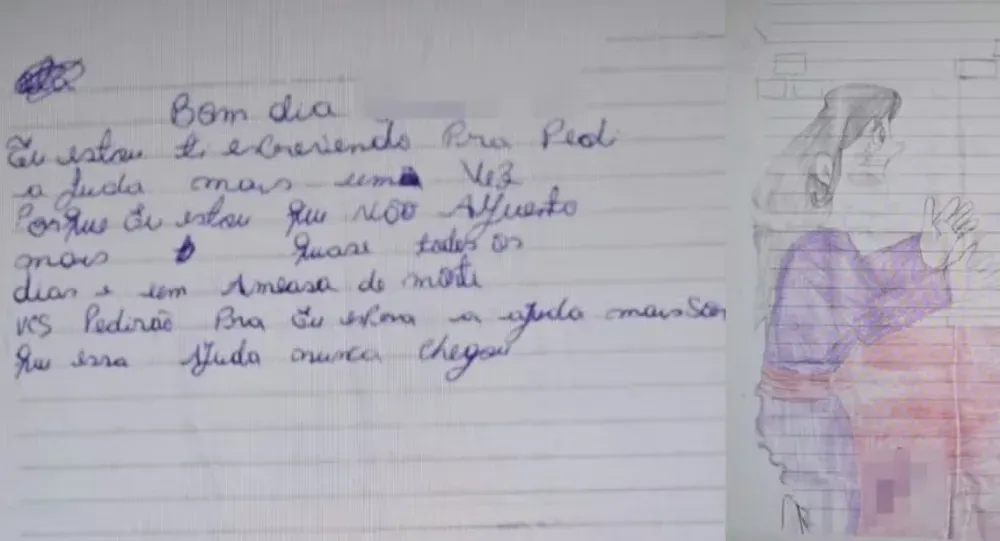 Bom dia
Eu estou ti escrevendo Pra Pedi
a Juda mais uma Vez
Porque Eu estou que não Aguento
mais quase todos os
dias e um Ameasa de morte
vcs Pedirão Pra Eu espera a ajuda mais Son
que essa Ajuda nunca chegou